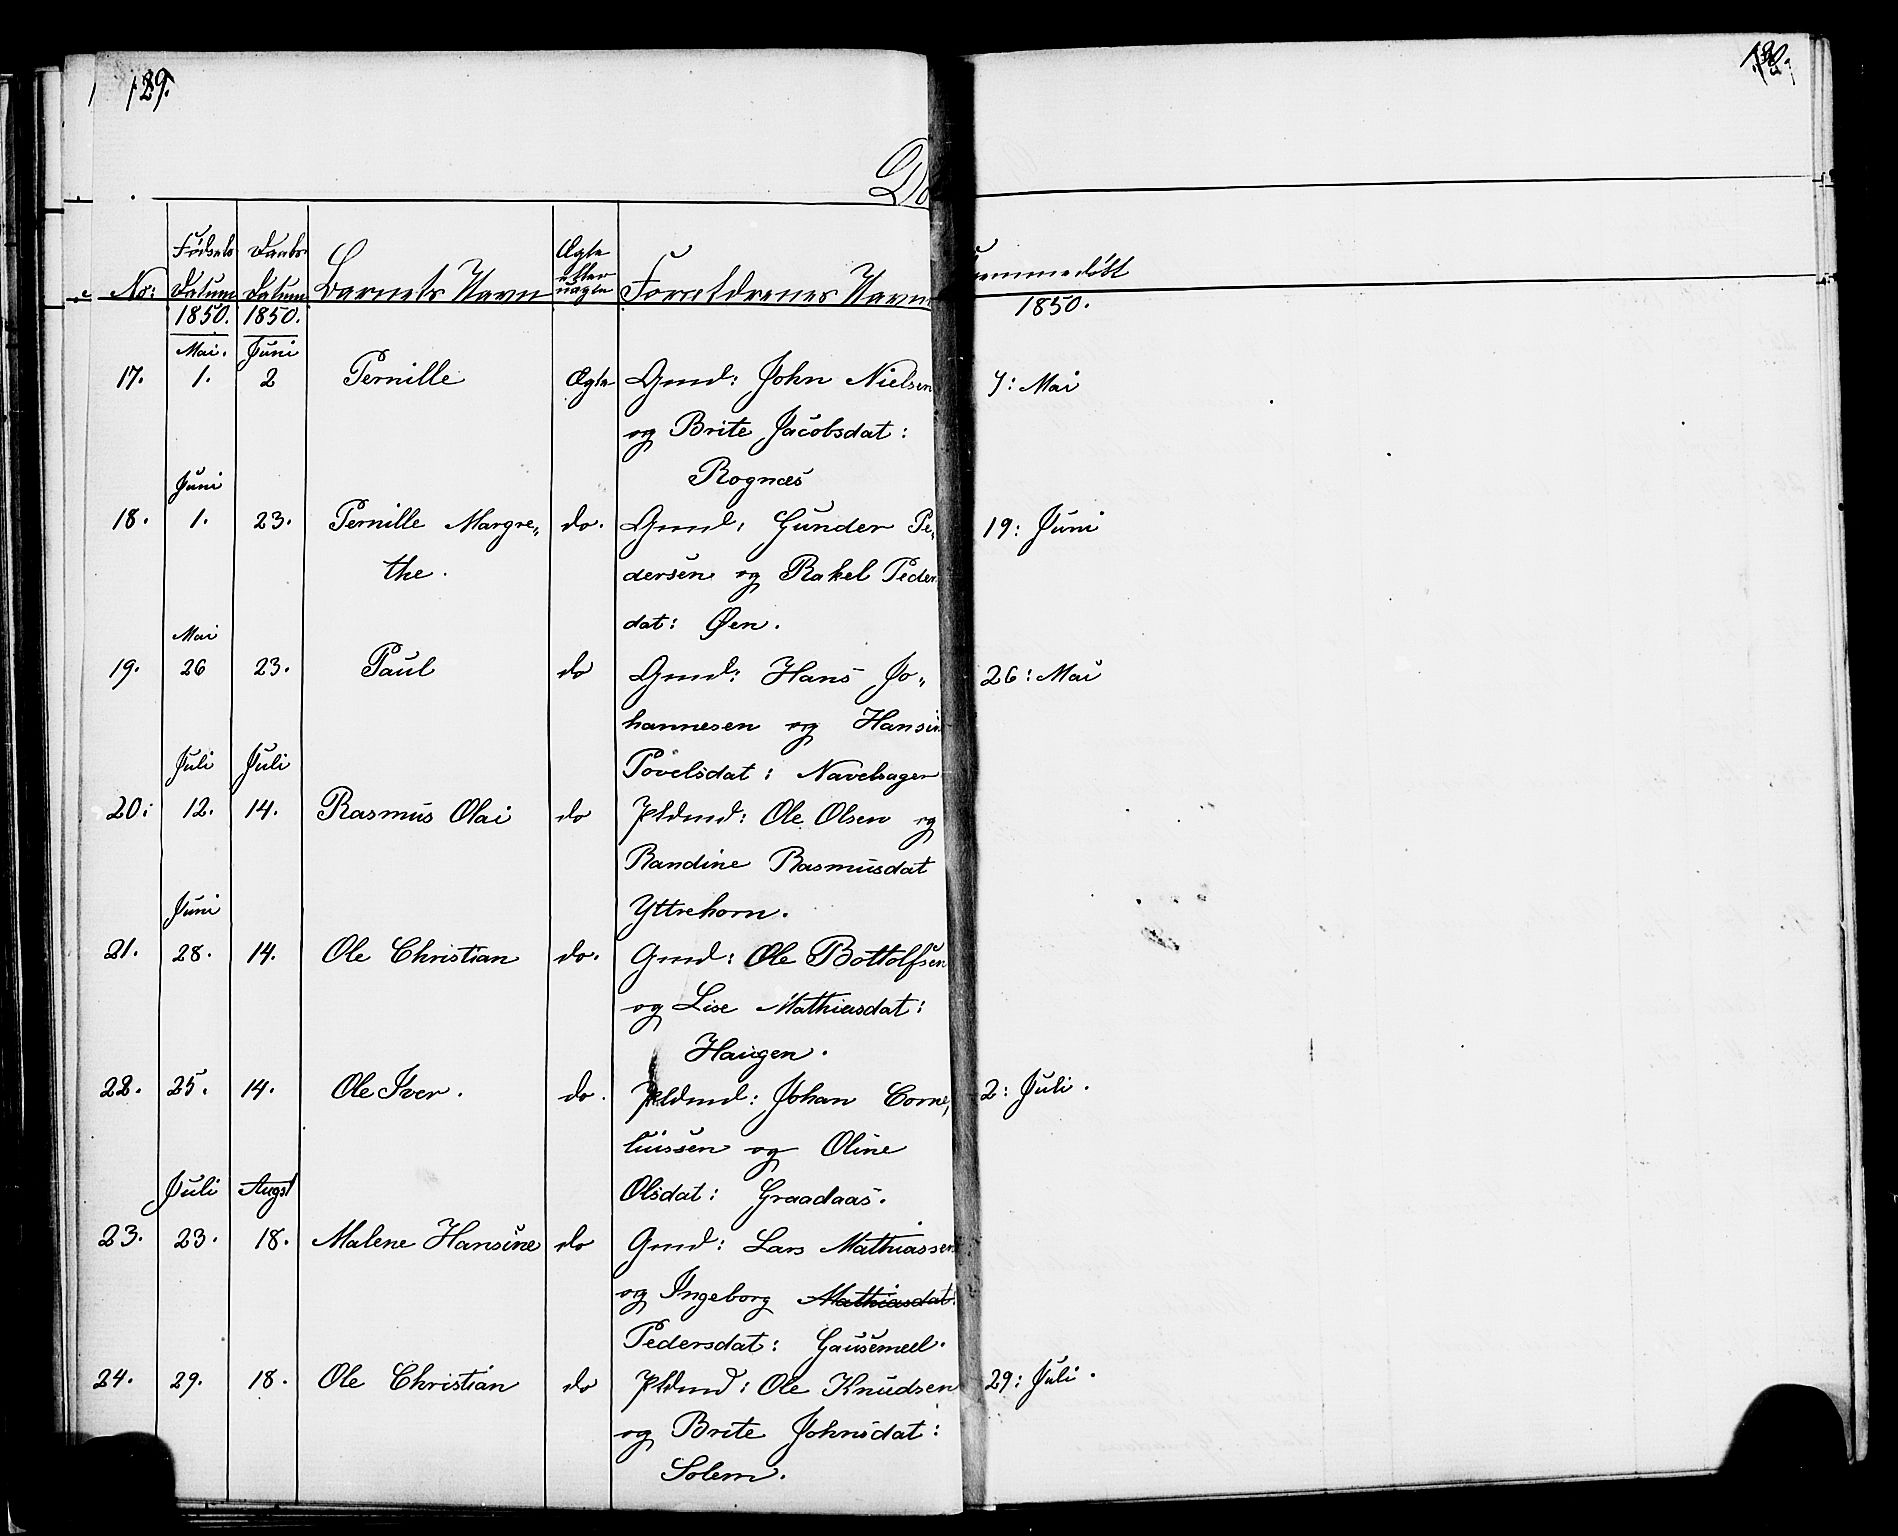 129.
Dø
No: Fødsels Datum Daabs Datum Barnets Navn Ægte eller uægte Forældrenes Navne jemmedøbt
1850. 1850. 1850.
Mai. Juni
17. 1. 2 Pernille Ægte Gmd: John Nielsen 7: Mai
og Brite Jacobsdat:
Juni Rognæs
18. 1. 23. Pernille Margre„ do. Gmd: Gunder Pe„ 19: Juni
the. dersen og Rakel Peder
Mai dat: Øen.
19. 26 23. Paul do Gmd: Hans Jo„ 26: Mai
hannesen og Hansin
Juli Juli Povelsdat: Navelsager
20: 12. 14. Rasmus Olai do Pldmd: Ole Olsen og
Randine Rasmusdat
Juni Yttrehorn.
21. 28. 14. Ole Christian do. Gmd: Ole Bottolfsen
og Lise Mathiasdat:
Haugen.
22. 25. 14. Ole Iver. do. Pldmd: Johan Corne„ 2: Juli.
liussen og Oline
Juli Augst Olsdat: Graadaas.
23. 23. 18. Malene Hansine do Gmd: Lars Mathiassen
og Ingeborg Mathiasdat:
Pedersdat: Gausemel.
24. 29. 18. Ole Christian do Pldmd: Ole Knudsen 29: Juli.
og Brite Johnsdat:
Solem.